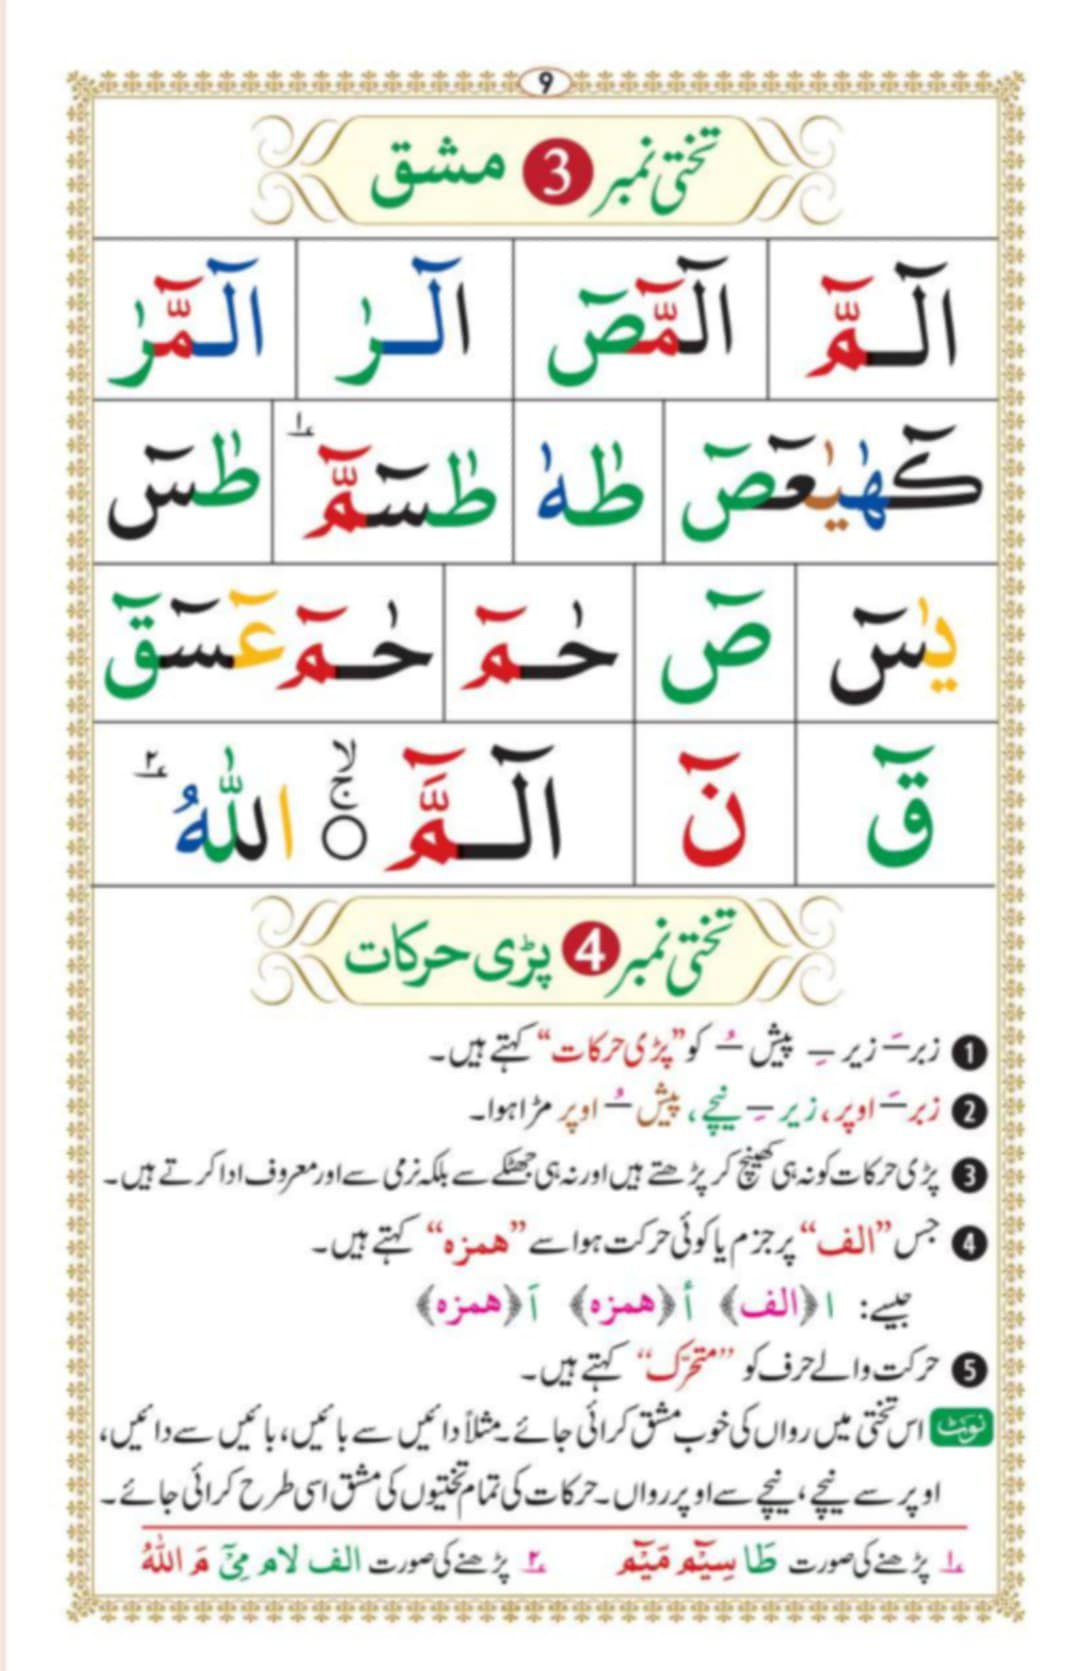 9
تختی نمبر 3 مشق
الٓـمّٓ الٓمّٓصٓ الٓـرٰ الٓـمّٓرٰ
كٓهٰيٰعٓصٓ طٰهٰ طٰسٓمّٓ ۱ طٰسٓ
يٰسٓ صٓ حٰـمٓ حٰـمٓ عٓسٓقٓ
قٓ نٓ الٓـمَّٓ ۙ ۚ ○ اللّٰهُ ۲
تختی نمبر 4 پڑی حرکات
1 زبر ـَ زیر ـِ پیش ـُ کو ”پڑی حرکات“ کہتے ہیں۔
2 زبر ـَ اوپر، زیر ـِ نیچے، پیش ـُ اوپر مڑا ہوا۔
3 پڑی حرکات کو نہ ہی کھینچ کر پڑھتے ہیں اور نہ ہی جھٹکے سے بلکہ نرمی سے اور معروف ادا کرتے ہیں۔
4 جس ”الف“ پر جزم یا کوئی حرکت ہو اسے ”همزہ“ کہتے ہیں۔
جیسے: ا ﴿الف﴾ أ ﴿همزہ﴾ اَ ﴿همزہ﴾
5 حرکت والے حرف کو ”متحرّک“ کہتے ہیں۔
نوٹ اس تختی میں رواں کی خوب مشق کرائی جائے۔ مثلاً دائیں سے بائیں، بائیں سے دائیں،
اوپر سے نیچے، نیچے سے اوپر رواں۔ حرکات کی تمام تختیوں کی مشق اسی طرح کرائی جائے۔
۱ پڑھنے کی صورت طَا سِیٓم مِّیٓم ۲ پڑھنے کی صورت الف لام مِیٓ مَ اللّٰهُ